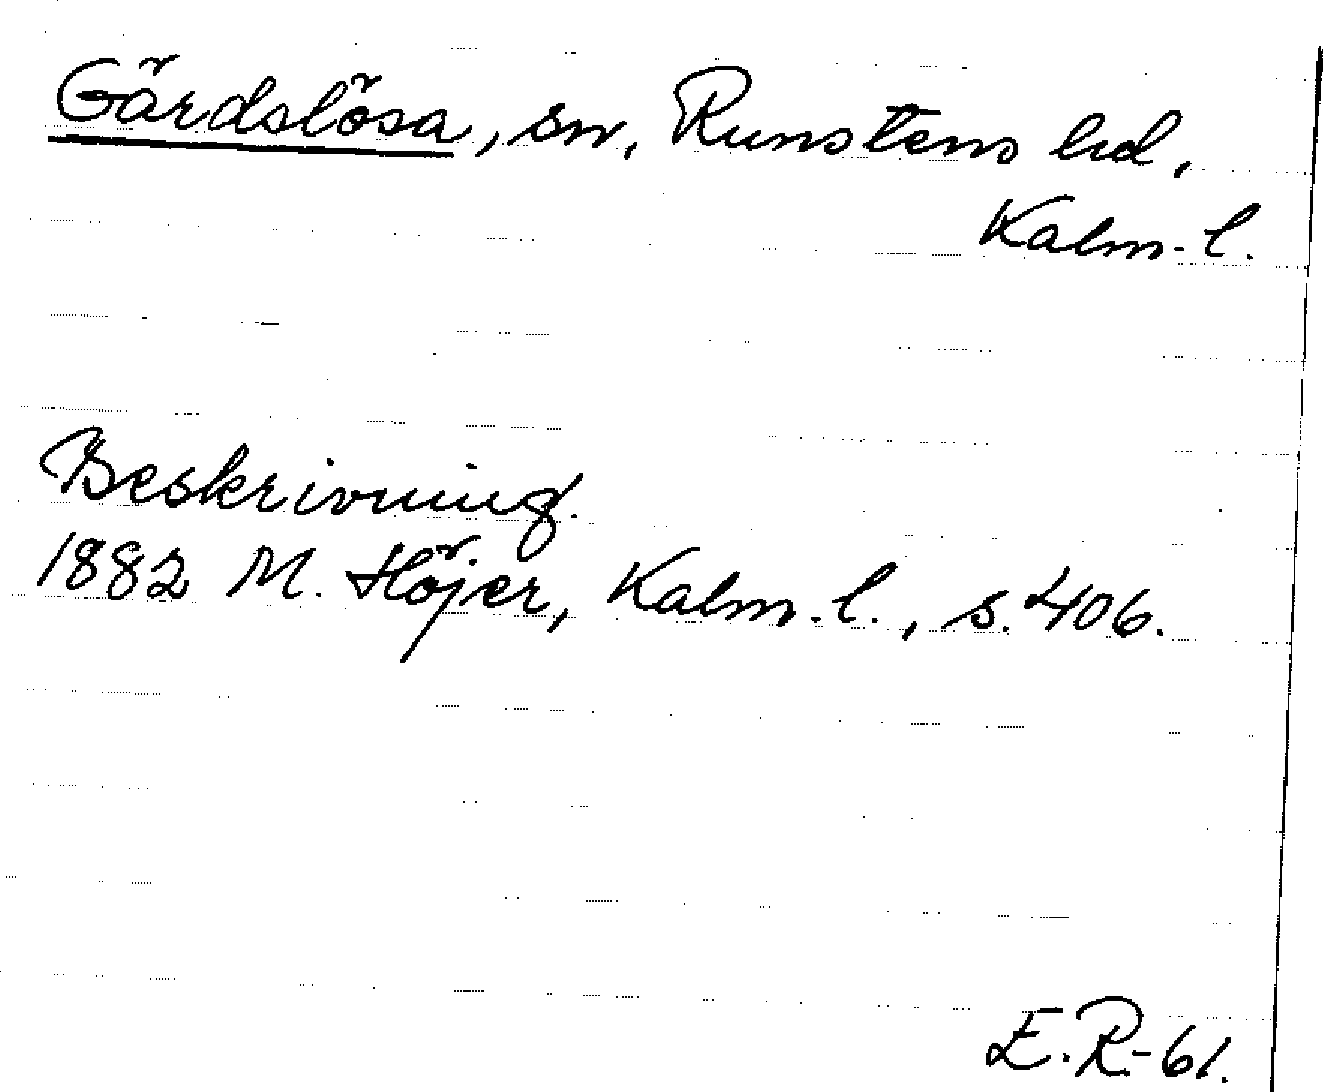 Gärdslösa, sn, Runstens hd,
Kalm. l.
Beskrivning.
1882 M. Höjer, Kalm. l., s. 406.
E.R.-61.